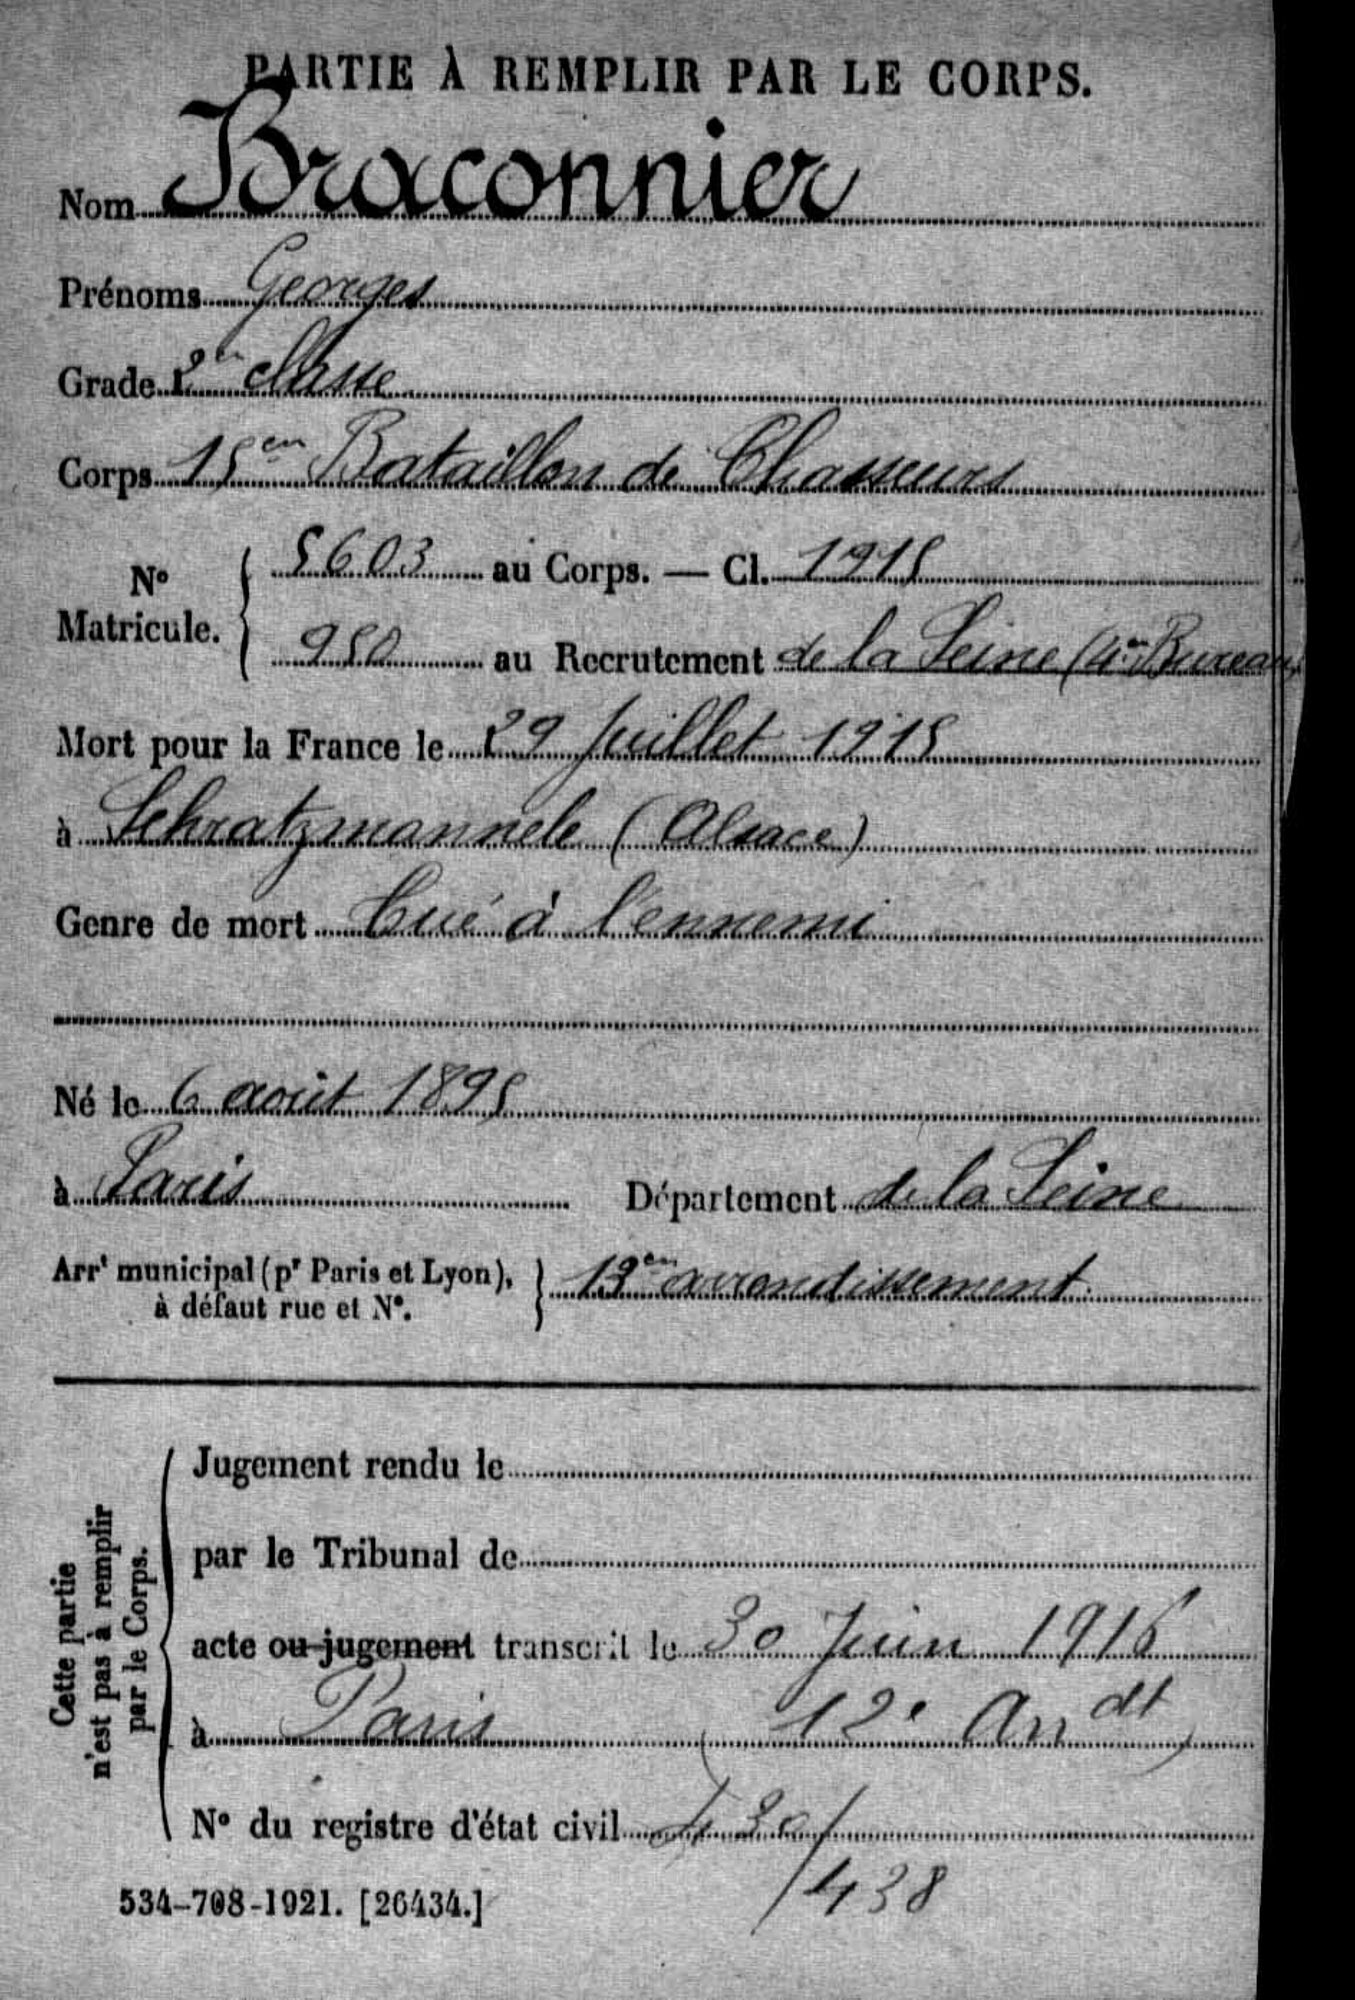 PARTIE À REMPLIR PAR LE CORPS.
Nom Braconnier
Prénoms Georges
Grade 2en classe
Corps 15en Bataillon de Chasseurs
No Matricule. 5603 au Corps. — Cl. 1915
950 au Recrutement de la Seine (4en Bureau)
Mort pour la France le 29 Juillet 1915
à Schratzmannele (Alsace)
Genre de mort Tué à l'ennemi
Né le 6 août 1895
à Paris Département de la Seine
Arrt municipal (pr Paris et Lyon), à défaut rue et No. 13en arrondissement
Cette partie n'est pas à remplir par le Corps.
Jugement rendu le
par le Tribunal de
acte ou jugement transcrit le 30 Juin 1916
à Paris (12e Arrdt)
No du registre d'état civil 
438
534-708-1921. [26434.]